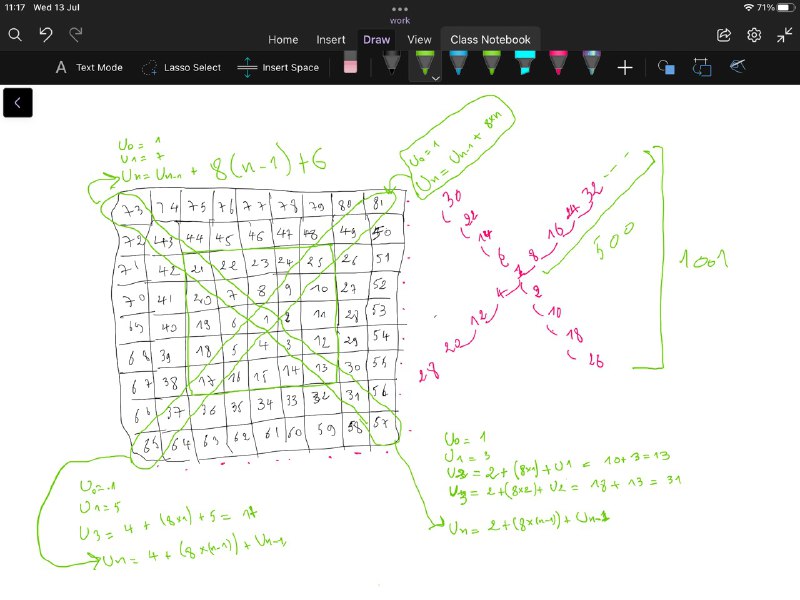 11:17 Wed 13 Jul
71%
work
Home Insert Draw View Class Notebook
Text Mode Lasso Select Insert Space
U0 = 1
U1 = 7
Un = Un-1 + 8(n-1)+6
U0 = 1
Un = Un-1 + 8×n
73 74 75 76 77 78 79 80 81
72 43 44 45 46 47 48 49 50
71 42 21 22 23 24 25 26 51
70 41 20 7 8 9 10 27 52
69 40 19 6 1 2 11 28 53
68 39 18 5 4 3 12 29 54
67 38 17 16 15 14 13 30 55
66 37 36 35 34 33 32 31 56
65 64 63 62 61 60 59 58 57
30 32
22 24
14 16
6 8
1
4 2
12 10
20 18
28 26
500
1001
U0 = 1
U1 = 5
U3 = 4 + (8×1) + 5 = 17
Un = 4 + (8×(n-1)) + Un-1
U0 = 1
U1 = 3
U2 = 2+(8×1)+U1 = 10+3=13
U3 = 2+(8×2)+U2 = 18+13 = 31
Un = 2+(8×(n-1))+Un-1